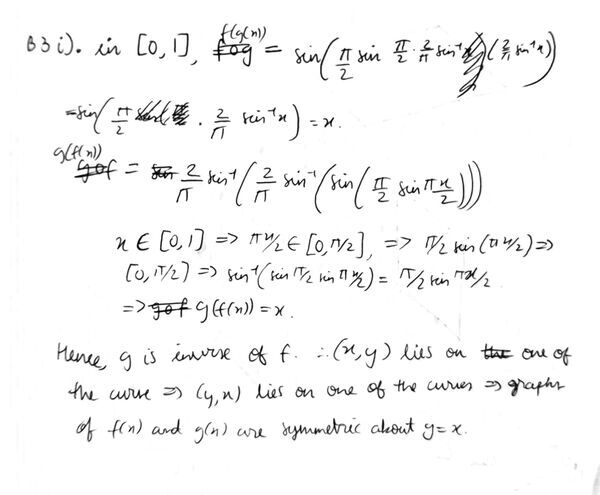 B3 i). in [0,1], f(g(x)) = sin(π/2 sin π/2 · 2/π sin⁻¹ (2/π sin⁻¹x)
= sin(π/2 · 2/π sin⁻¹x) = x.
g(f(x)) = 2/π sin⁻¹(2/π sin⁻¹(sin(π/2 sin πx/2)))
x ∈ [0,1] => πx/2 ∈ [0,π/2], => π/2 sin(πx/2) =>
[0,π/2] => sin⁻¹(sin π/2 sin πx/2) = π/2 sin πx/2
=> g(f(x)) = x.
Hence, g is inverse of f. ∴ (x,y) lies on one of
the curve => (y,x) lies on one of the curves => graphs
of f(x) and g(x) are symmetric about y=x.